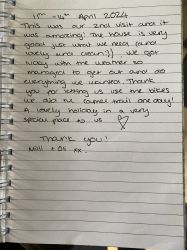 11th - 14th April 2024
This was our 2nd visit and it
was amazing! The house is very
good just what we need (and
lovely and clean:)). We got
lucky with the weather so
managed to get out and do
everything we wanted. Thank
you for letting us use the bikes
we did the camel trail one day!
A lovely holiday in a very
special place to us ♡
Thank you!
xx